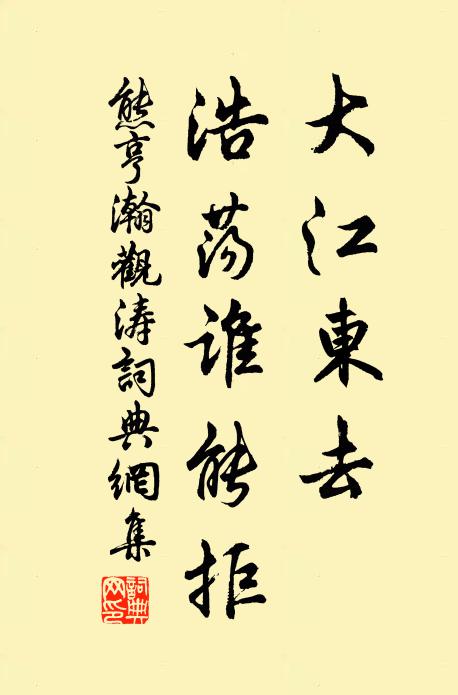 大江東去
浩荡誰能拒
熊亨瀚觀涛詞典網集
詞典
网印